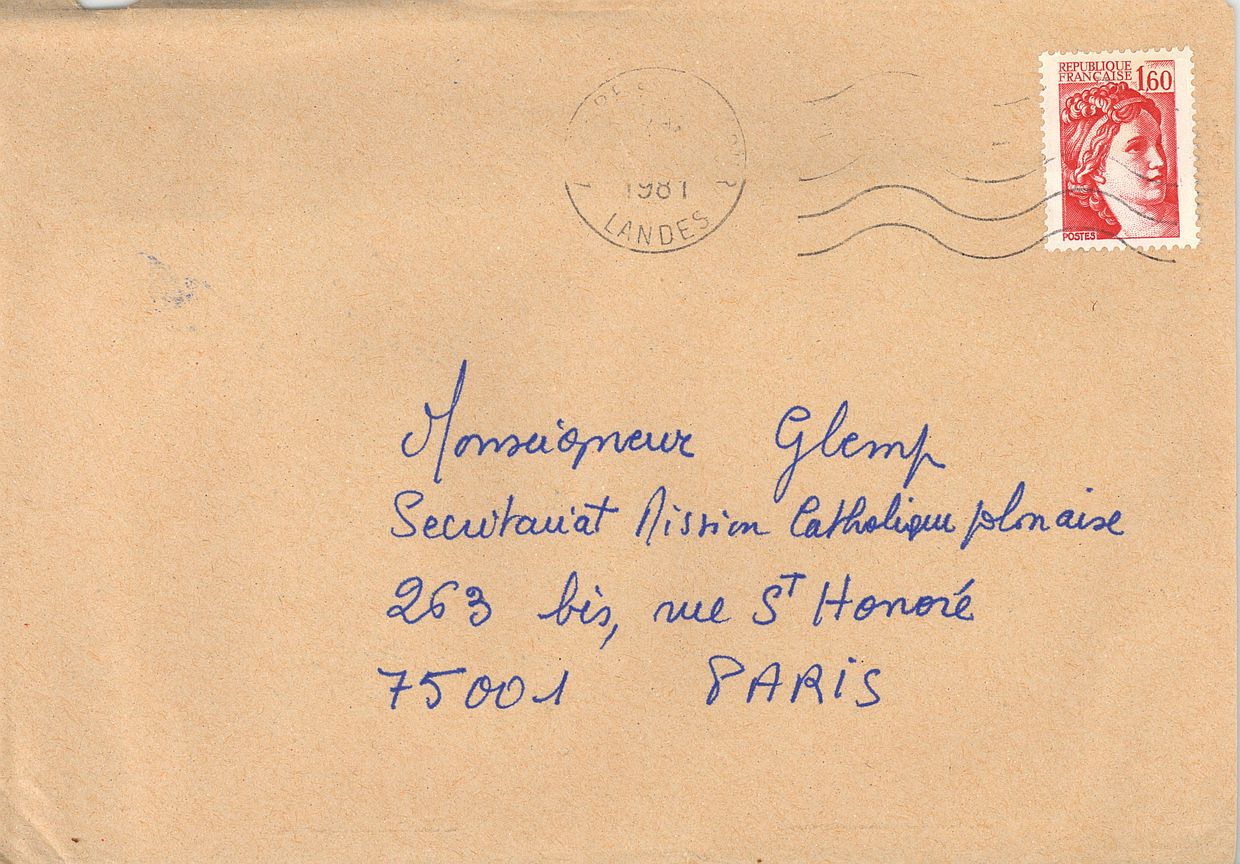 REPUBLIQUE
FRANÇAISE 1,60
POSTES
1981
LANDES
Monseigneur Glemp
Secrétariat Mission Catholique plonaise
263 bis, rue St Honoré
75001 PARIS